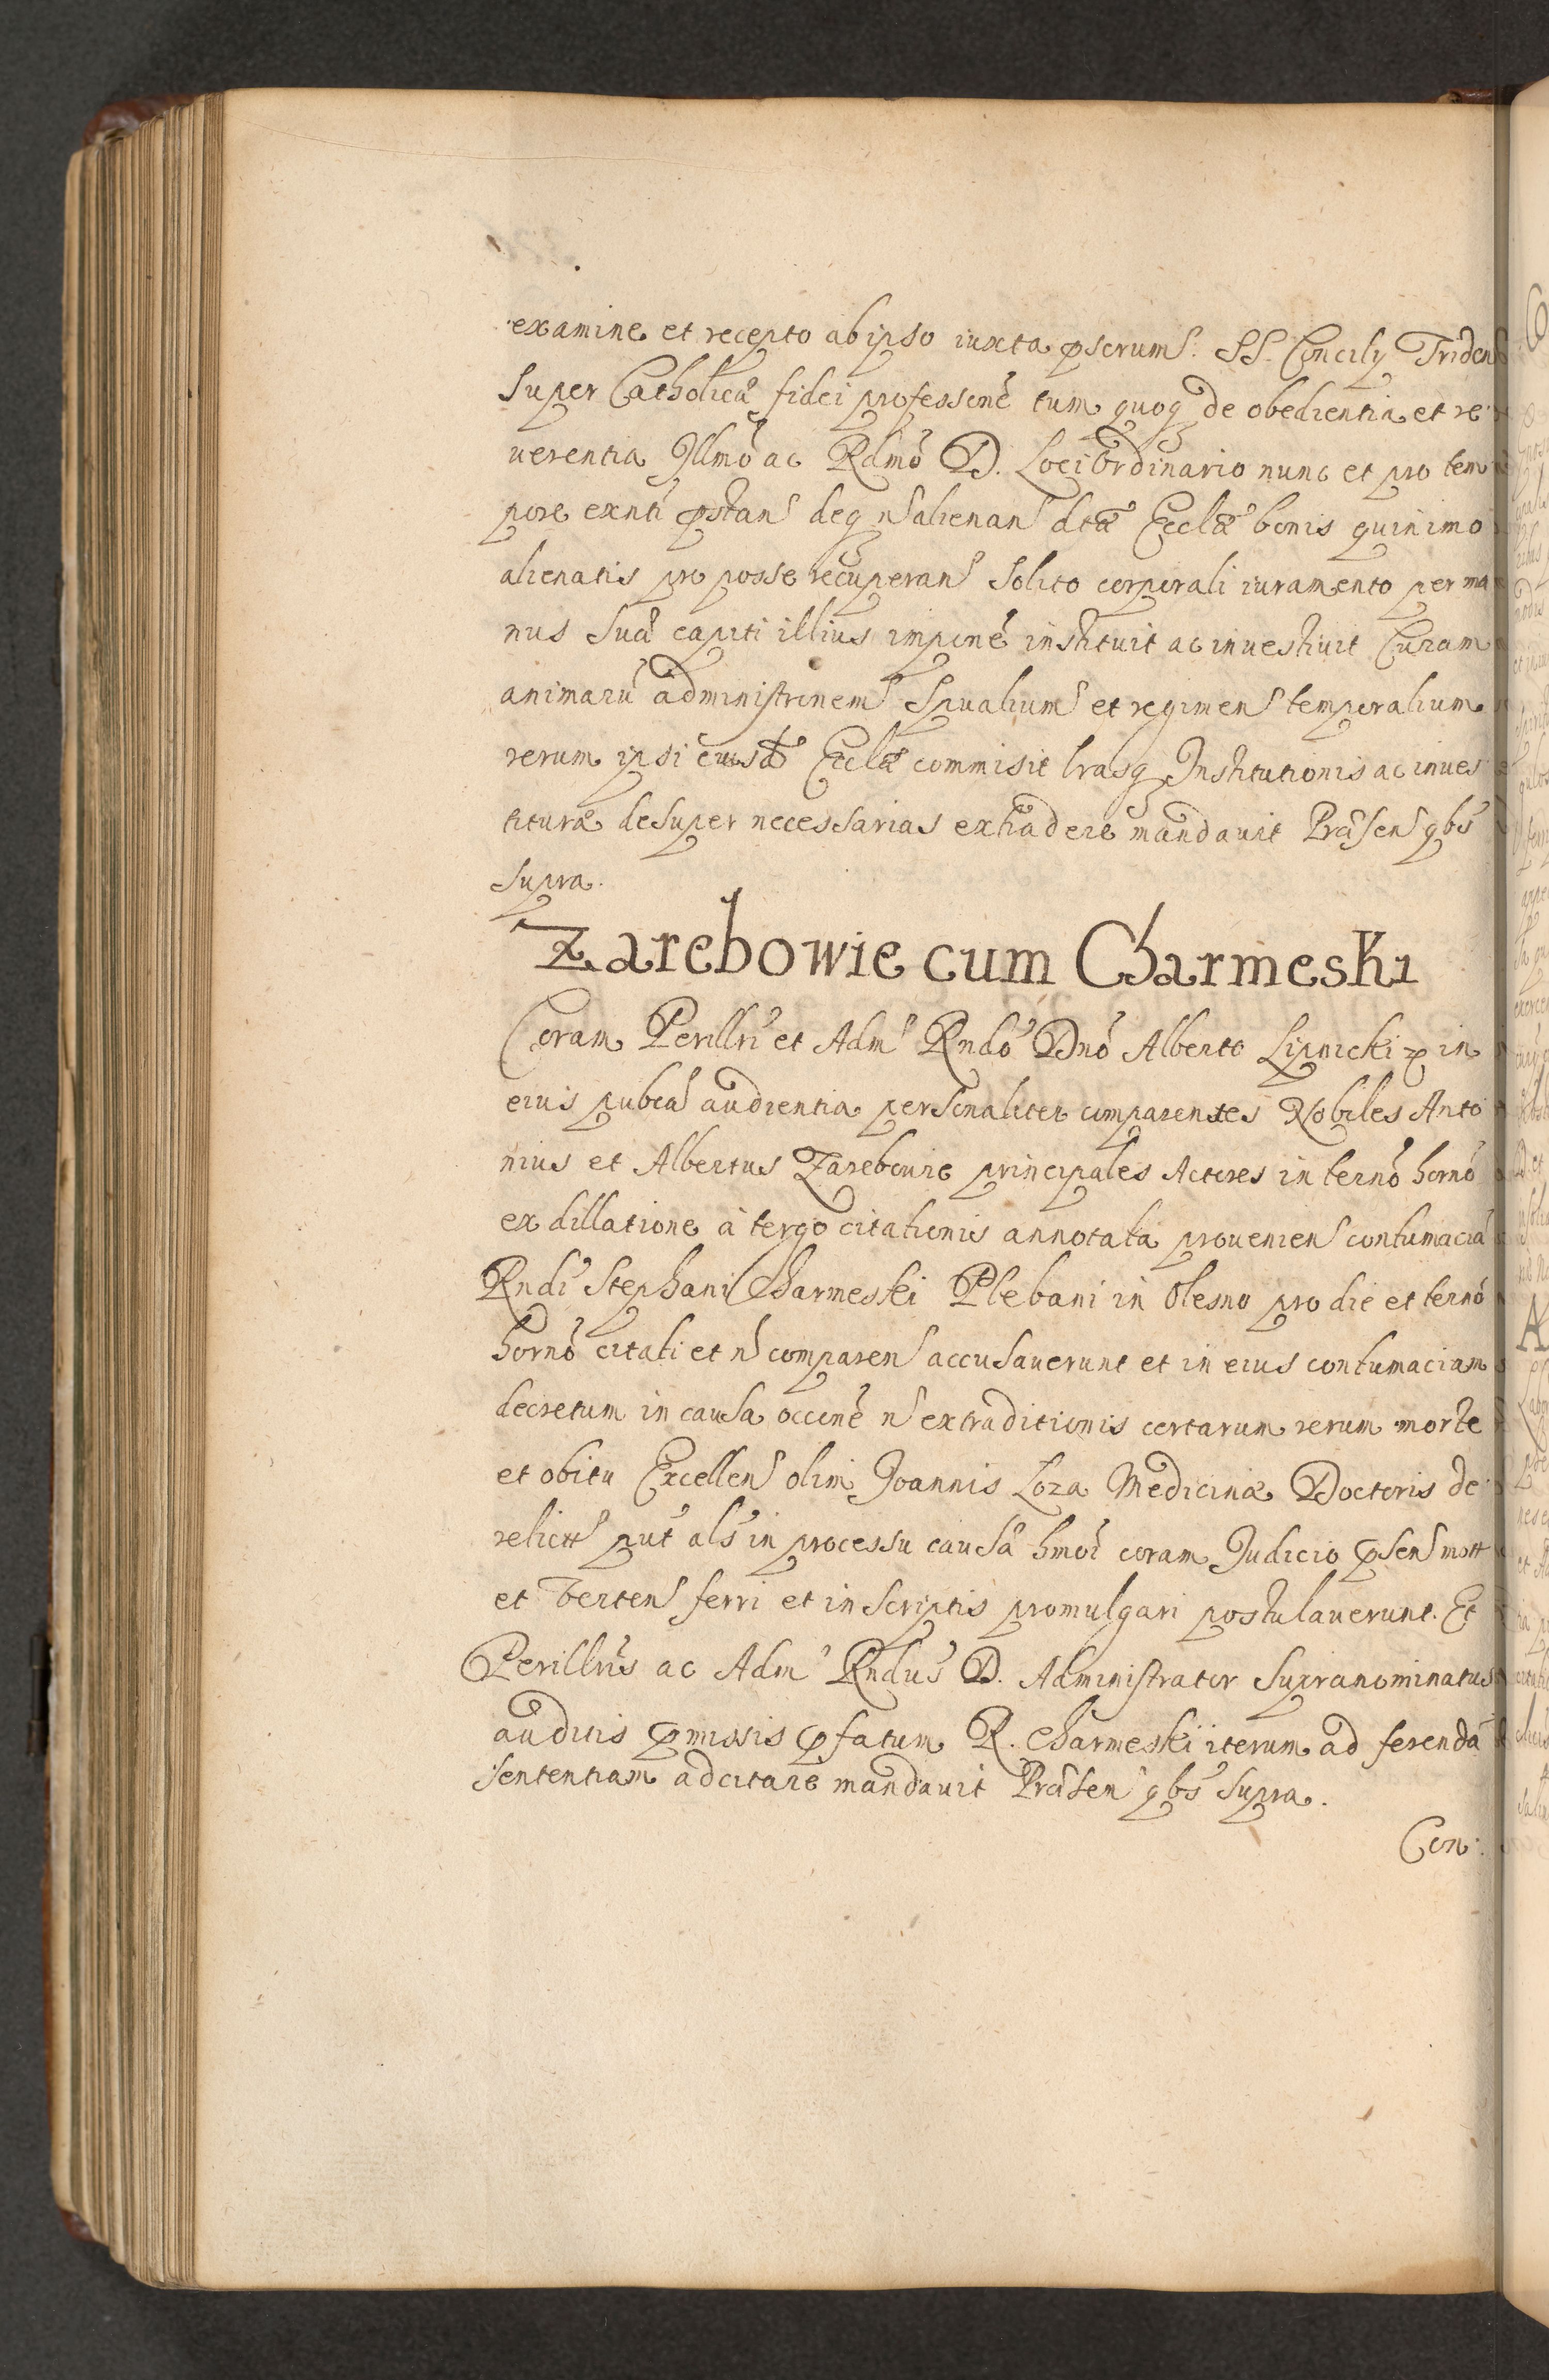 examine et recepto ab ipso iuxta pscrum. SS. Concily Triden
super Catholicæ fidei professione tum quoq de obedientia et re
uerentia Illmo ac Rdmo D. Loci Ordinario nunc et pro tem
pore exnti pstan deq n alienan dtæ Ecclæ bonis quinimo
alienatis pro posse recuperan solito corporali iuramento per ma
nus suæ capiti illius impone instituit ac inuestiuit Curam
animaru administrnem Spualium et regimen temporalium
rerum ipsi eiusd Ecclæ commisit lrasq Institutionis ac inues
tituræ desuper necessarias extradere mandauit Præsen qbs
supra.
Zarebowie cum Charmeski
Coram Perillri et Adm Rndo Dno Alberto Lipnicki in
eius pubca audientia personaliter comparentes Nobiles Anto
nius et Albertus Zarebowie principales Actores in termo horno
ex dillatione à tergo citationis annotata prouenien contumacia
Rndi Stephani Charmeski Plebani in Olesno pro die et termo
horno citati et n comparen accusauerunt et in eius contumaciam
decretum in causa occone n extraditionis certarum rerum morte
et obitu Excellen olim Joannis Loza Medicinæ Doctoris de
relict put als in processu causæ hmoi coram Judicio psen mott
et verten ferri et in scriptis promulgari postulauerunt. Et
Perillris ac Adm Rndus D. Administrator supranominatus
auditis pmissis pfatum R. Charmeski iterum ad ferenda
sententiam adcitare mandauit Præsen qbs supra.
Con: